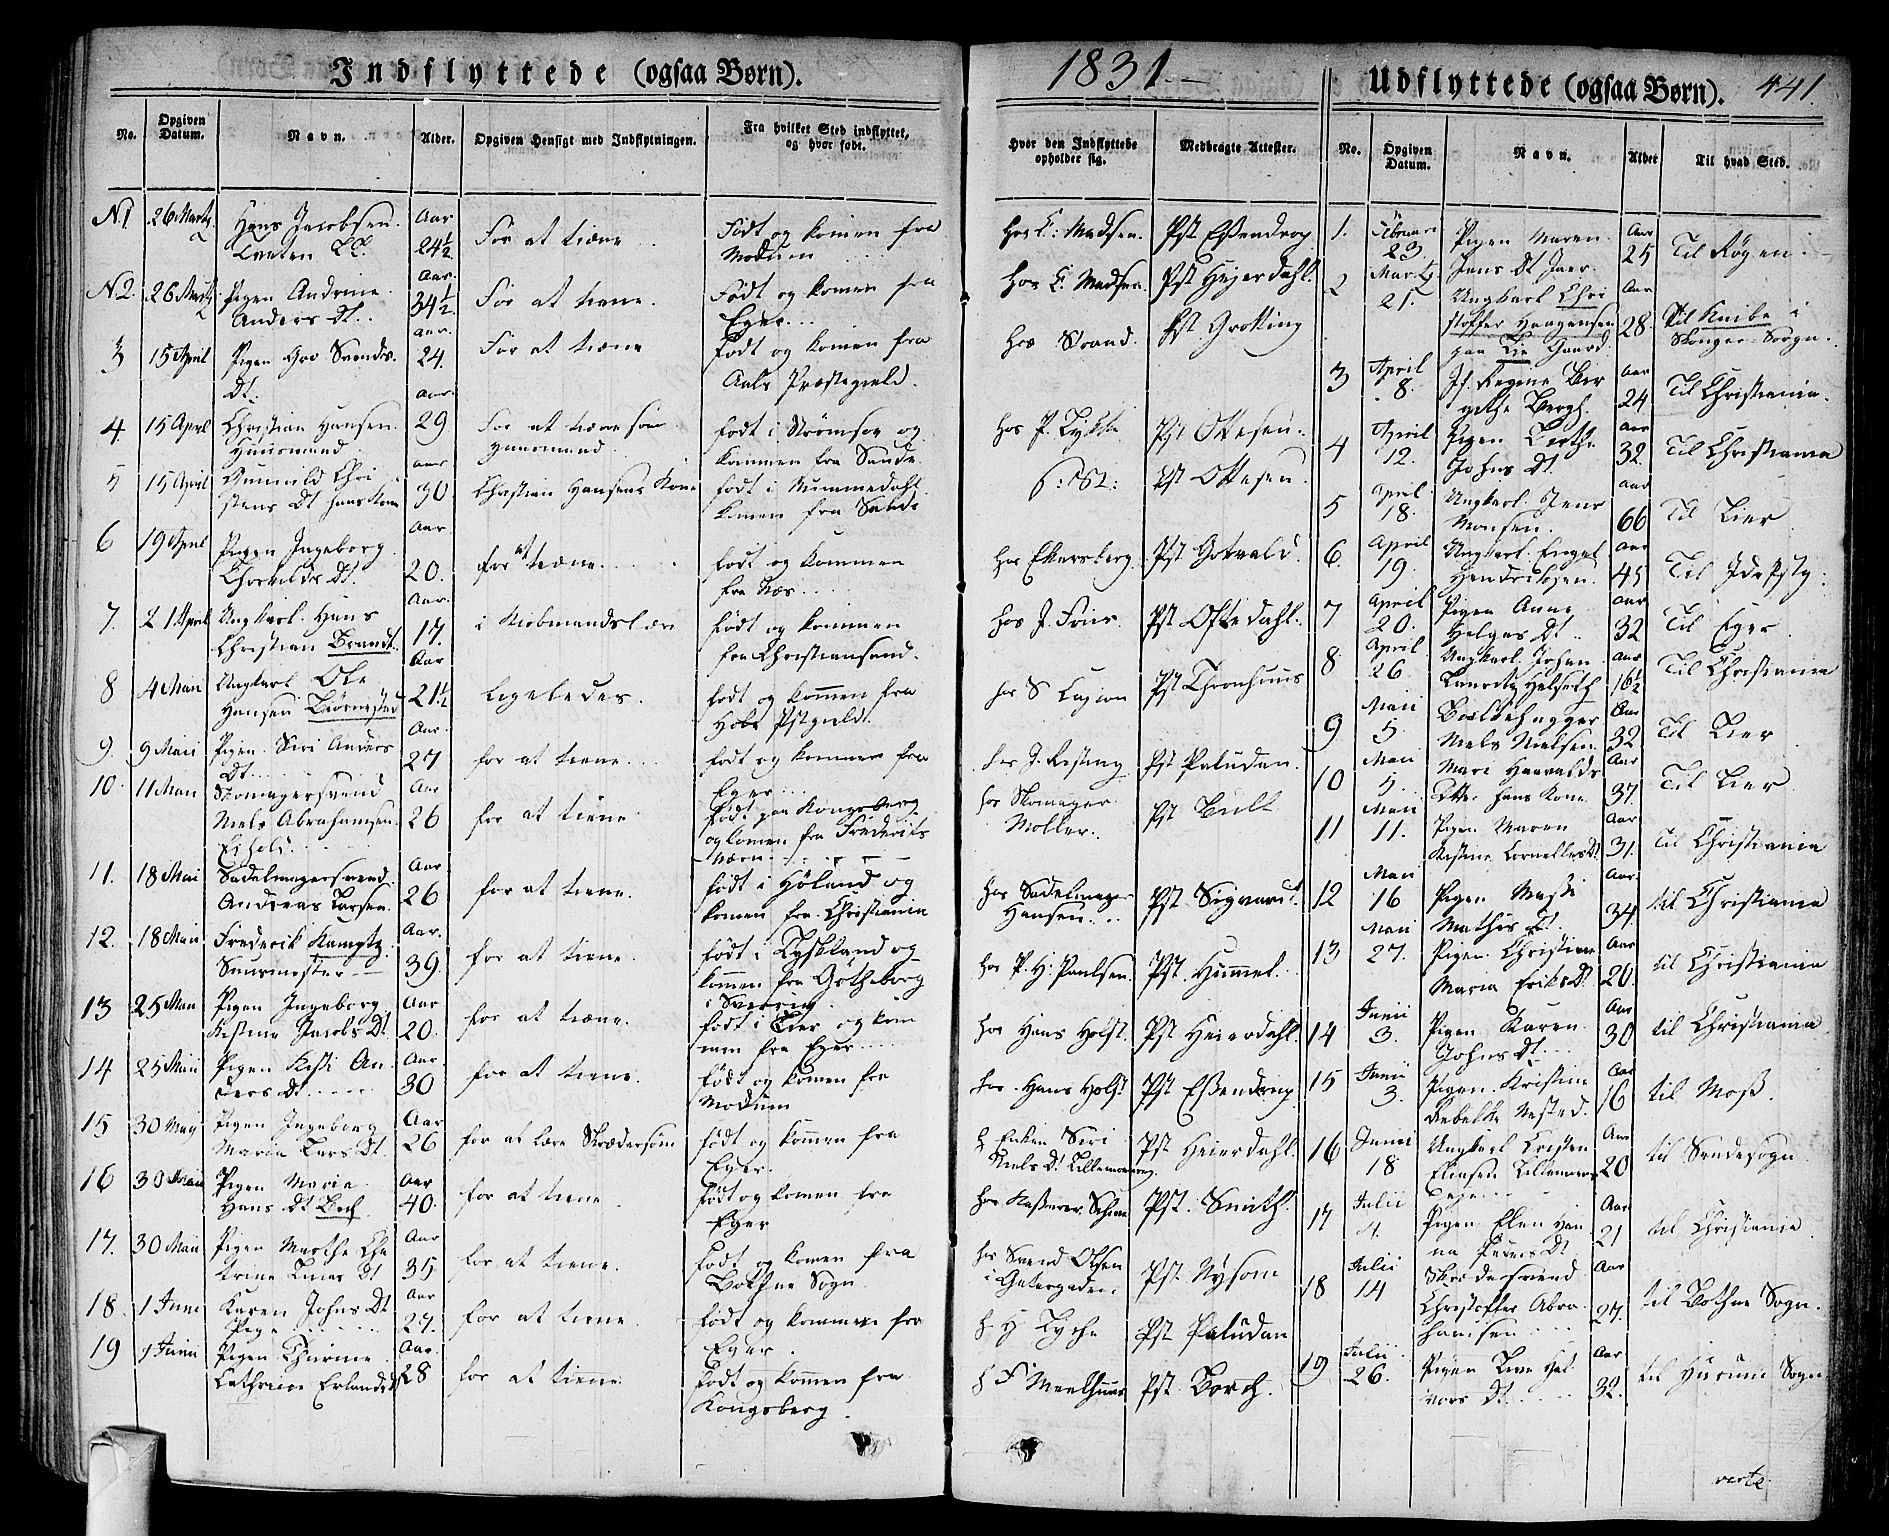 Indflyttede (ogsaa Børn).
1831.
Udflyttede (ogsaa Børn). 441.
No. Opgiven Datum. Navn. Alder. Opgiven Hensigt med Indflytningen. Fra hvilket Sted indflyttet, og hvor født.
Hvor den Indflyttede opholder sig. Medbragte Attester. No. Opgiven Datum. Navn. Alder Til hvad Sted.
N1. 26 Marts Hans Jacobsen Aar 24½ For at tiene Født og komen fra Modum
hos C: Madsen. Pst Essendrop
N2. 26 Marts Pigen Andrine Anders Dt. Aar. 34½ For at tiene. Født og komen fra Eger
hos C. Madsen Pst Heierdahl.
3 15 April Pigen Gro Svends Dt. Aar. 24. For at tiene Født og komen fra Aals Præstegield.
hos Strand. Pst. Grotting
4. 15 April Christian Hansen Huusmand Aar. 29 For at tiene som Huusmand født i Strømsøe og kommen fra Sande
hos P. Tyche Pst Ottesen.
5 15 April Gunnild Christens Dt hans Kone Aar 30 Christian Hansens Kone født i Nummedahl komen fra Sande
Pst Ottesen.
6 19 April Pigen Ingeborg Thorkilds Dt. Aar 20. for at tiene født og kommen fra Næs
hos Ekersberg Pst Gotvald.
7. 21 April Ungkarl. Hans Christian Brandt Aar. 17. i Kiøbmandslære født og kommen fra Christiansand.
hos J. Friis. Pst Oftedahl.
8 4 Maii Ungkarl Ole Hansen Aar 21½ Ligeledes. født og kommen fra Hobs Pstgield.
hos S Pst Thronhuus
9. 9 Maii Pigen Siri Anders Dt Aar. 27 for at tiene født og kommen fra Eger
hos J. Risting Pst Paludan.
10. 11 Maii Skomagersvend Niels Abrahamsen Aar 26 for at tiene født paa Kongsberg og komen fra Frederiks Værn
hos Skomager Moller. Pst Bull
11. 18 Mai Sadelmagersvend Andreas Larsen Aar 26 for at tiene. født i Høland og komen fra Christiania
hos Sadelmager Hansen Pst. Sigvardt.
12. 18 Maii Frederik Kamptz Muurmester Aar. 39. for at tiene. født i Tyskland og kommen fra Gøtheborg i Sverrig
hos P. H. Paulsen. Pst. Himmel.
13 25 Maii Pigen Ingeborg Kistine Jacobs Dt Aar 20. for at tiene. født i Lier og kommen fra Eger
hos Hans Holst. Pst Heierdahl.
14 25 Maii Pigen Kisti Anders Dt Aar 30 for at tiene. født og komen fra Modum
hos Hans Holst Pst Essendrop.
15 30 May Pigen Ingeborg Maria Lars Dt. Aar 26 for at lære Skrædersøm født og kommen fra Eger.
h Enken Siri Niels Dt Pst Heierdahl.
16 30 Maii Pigen Maria Hans Dt Bech Aar 40. for at tiene født og komen fra Eger
hos Kasserer Pst. Smith.
17. 30 Maii Pigen Marthe Chatrine Dt Aar 35 for at tiene. født og komen fra Bothne Sogn
hos Svend Olsen i Pst Nysom
18. 1 Juni Karen Johns Dt Pige Aar 27. for at tiene. født og kommen fra Eger.
h H Tyche Pst Paludan
19 1 Junii Pigen Thurine Cathrine Erlands Dt Aar. 28 for at tiene. født og kommen fra Kongsberg.
Pst. Borch.
1. Februar 23. Pigen Maren Jens Dt Aar 25 Til Røgen.
2 Marts 21. Ungkarl Christoffer Haagensen Aar 28. Til i Sogn.
3 April 8. Jf. Regine Birgithe Bergh. Aar 24 Til Christiania.
4 April 12. Pigen Berthe Johns Dt Aar 32. Til Christiania
5 April 18. Ungkarl. Jens Monsen. Aar 66 Til Lier
6. April 19. Ungkarl. Engel Hendriksen. Aar 45 Til Ide Pstg:
7 April 20. Pigen Anne Helges Dt Aar 32 Til Eger
8. April 26. Ungkarl. Johan Lauritz Aar 16½ Til Christiania
9 Maii 5. Niels Nielsen. Aar 32. Til Lier
10 Maii 5. Mari Haavalds Dtter hans Kone Aar 37. Til Lier
11 Maii 11. Pigen Maren Kistine Cornelles Dt Aar 31. til Christiania
12 Maii 16 Pigen Mathis Dt. Aar. 34 til Christiania
13 Maii 27. Pigen Christiane Maria Eriks Dt Aar 20. til Christiania
14 Junii 3. Pigen Karen Johns Dt Aar 30 til Christiania
15 Junii 3. Pigen Kristin Aar 16 til Moss.
16 Junii 18 Ungkarl Cristen Aar 20 til Sandesogn
17 Julii 4. Pigen Elen Hanna Peders Dt Aar 21 til Christiania
18 Julii 14 Skrædersvend Christoffer Abrahamsen Aar 27. til Bothne Sogn.
19 Julii 26. Pigen Live Halvors Dt Aar 32. til Hurum Sogn
verte